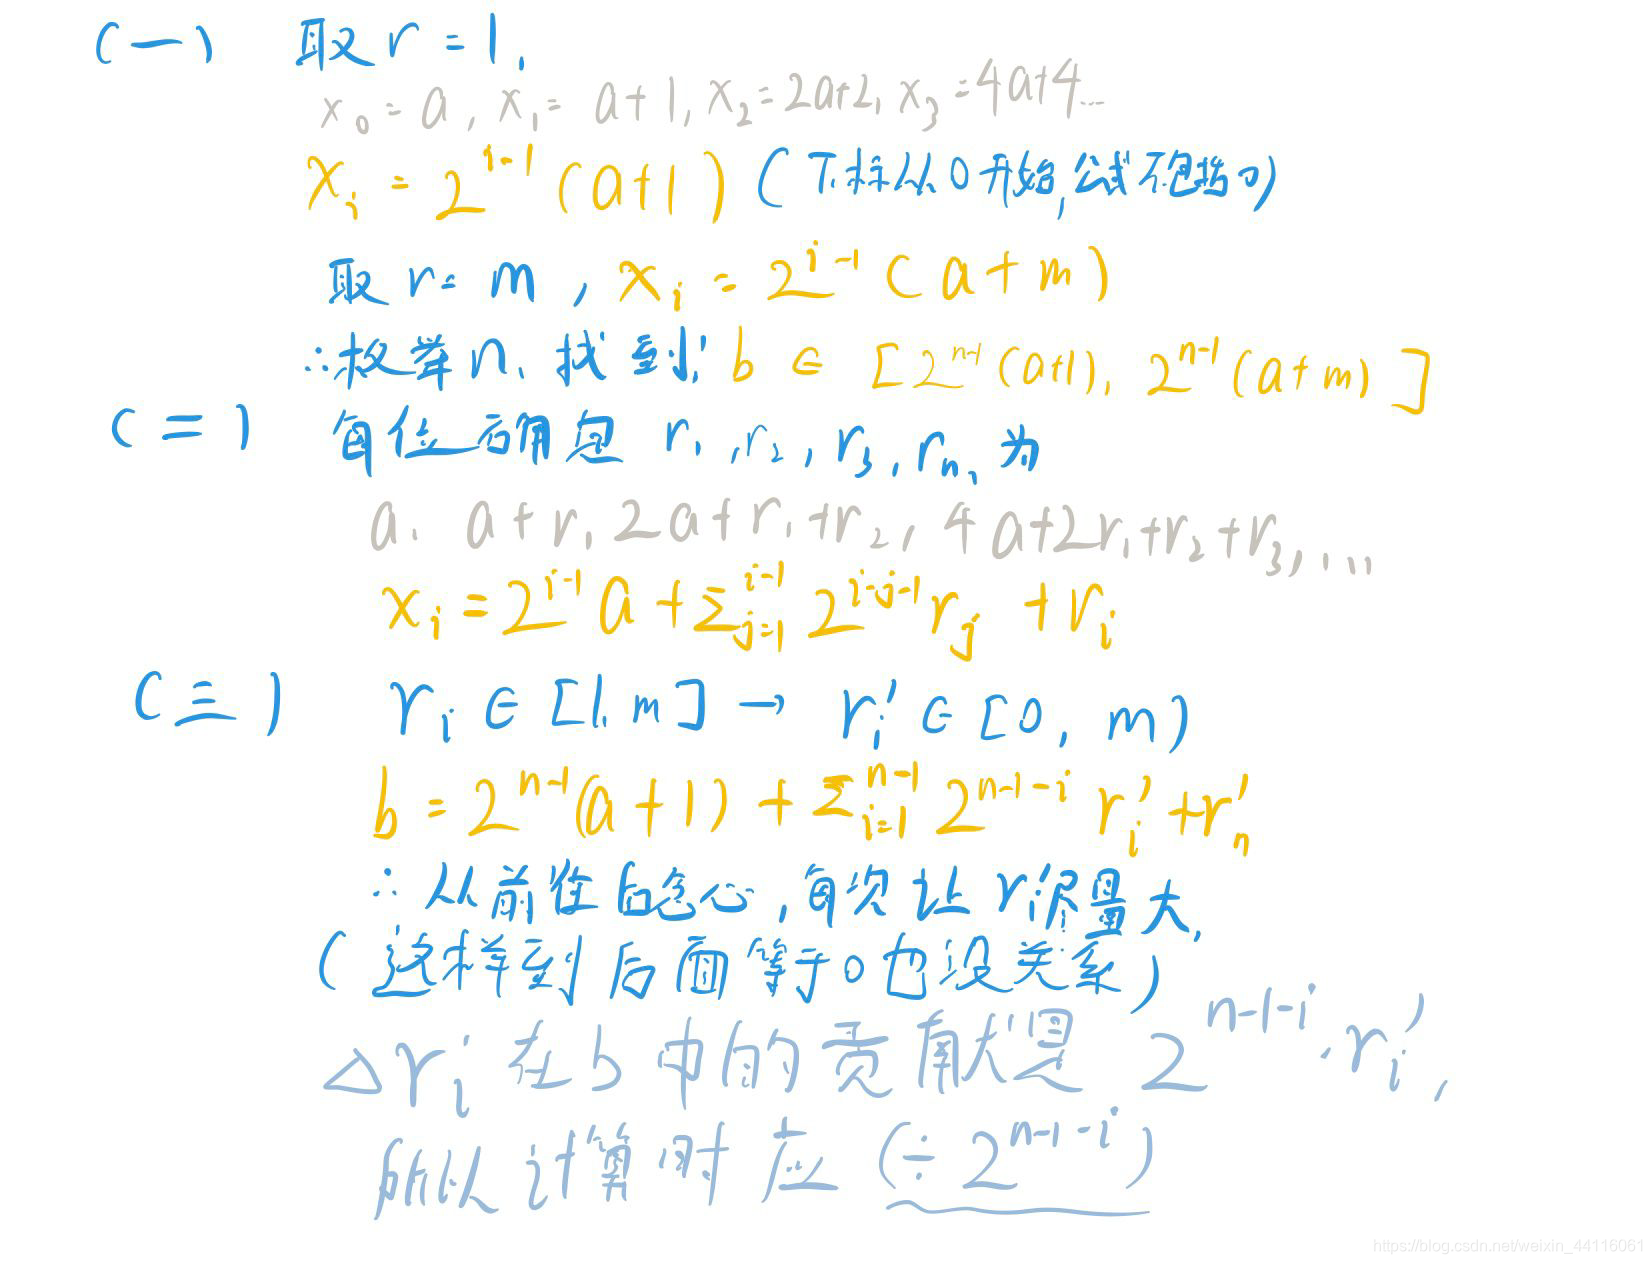 (一) 取 r = 1,
x₀ = a, x₁ = a+1, x₂ = 2a+2, x₃ = 4a+4...
xᵢ = 2^{i-1} (a+1) (下标从0开始, 公式不包括0)
取 r = m, xᵢ = 2^{i-1} (a+m)
∴枚举n, 找到 b ∈ [2^{n-1}(a+1), 2^{n-1}(a+m)]
(二) 每位 r₁, r₂, r₃, rₙ, 为
a, a+r₁ 2a+r₁+r₂, 4a+2r₁+r₂+r₃, ...
xᵢ = 2^{i-1}a + Σ_{j=1}^{i-1} 2^{i-j-1} r_j + rᵢ
(三) rᵢ ∈ [1, m] → rᵢ' ∈ [0, m)
b = 2^{n-1}(a+1) + Σ_{i=1}^{n-1} 2^{n-1-i} rᵢ' + rₙ'
∴ 从前往后贪心, 每次让 rᵢ'尽量大,
(这样到后面等于0也没关系)
△rᵢ' 在b中的贡献是 2^{n-1-i}·rᵢ',
所以计算时应 (÷2^{n-1-i})
https://blog.csdn.net/weixin_44116061